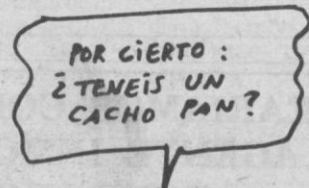 POR CiERTO :
¿ TENEiS UN
CACHO PAN ?